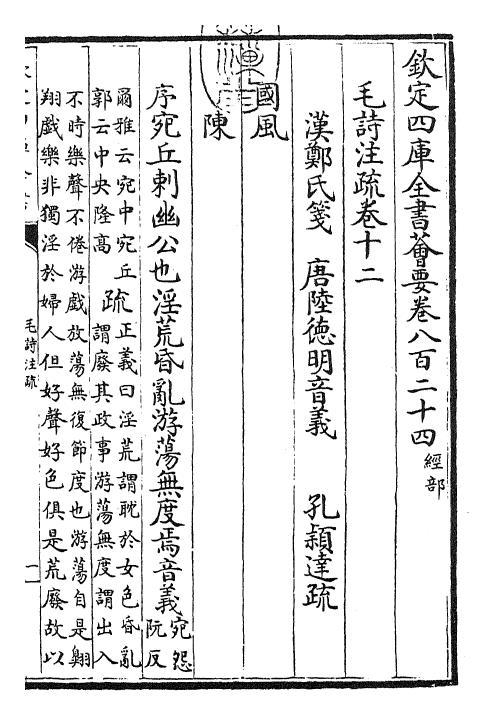 欽定四庫全書薈要卷八百二十四 經部
毛詩注疏卷十二
漢鄭氏箋 唐陸徳明音義 孔穎達疏
國風
陳
序宛丘刺幽公也淫荒昏亂游蕩無度焉音義宛怨
阮反
爾雅云宛中宛丘
郭云中央隆高
疏正義曰淫荒謂耽於女色昏亂
謂廢其政事游蕩無度謂出入
不時樂聲不倦游戲放蕩無復節度也游蕩自是翺
翔戲樂非獨淫於婦人但好聲好色俱是荒廢故以
毛詩注疏
一